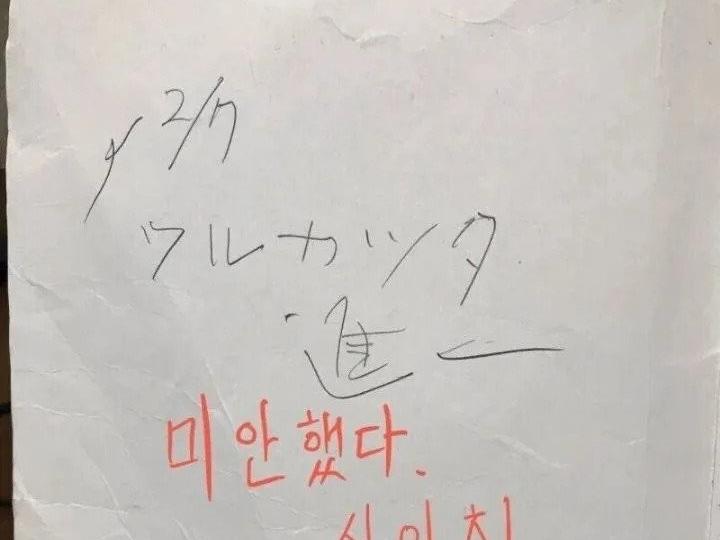 12/7
ワルカツタ
進一
미안했다.
신이치